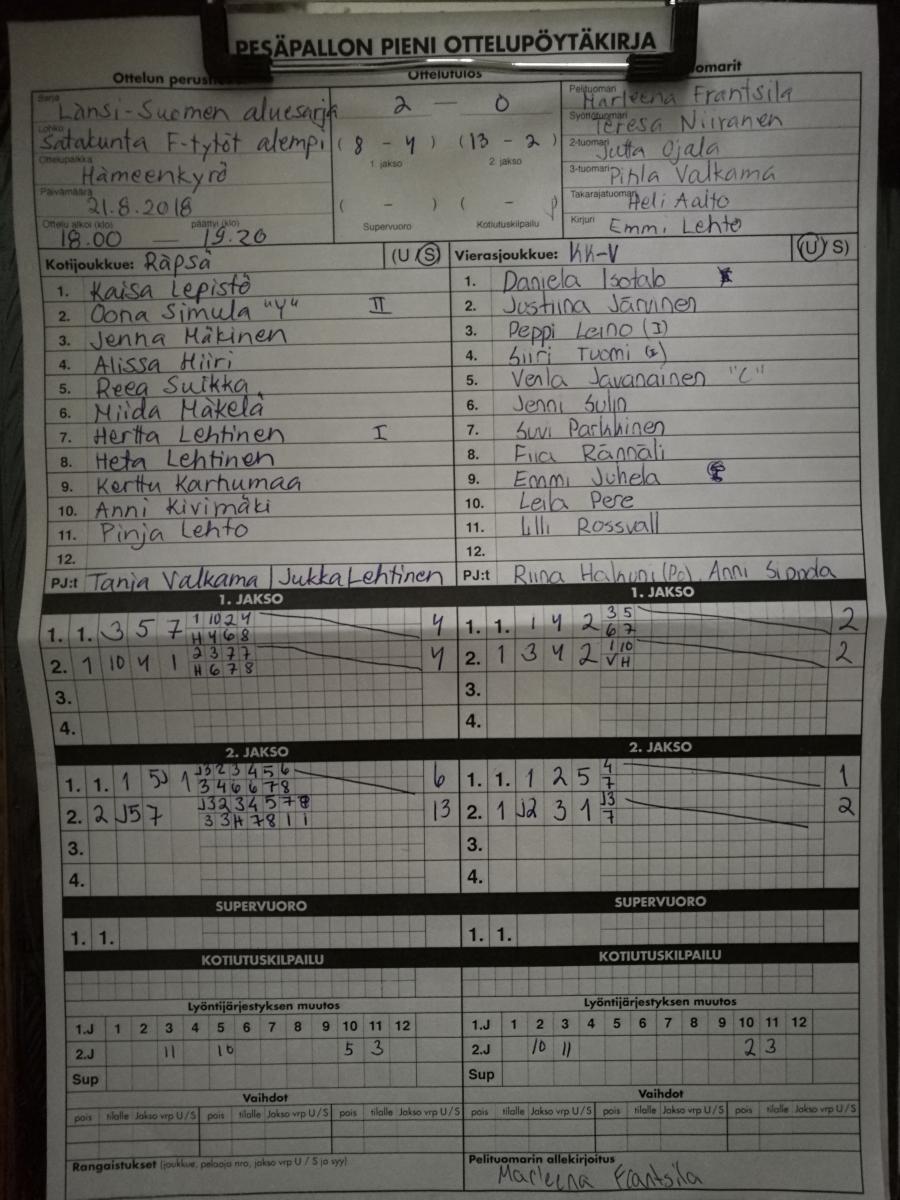 PESÄPALLON PIENI OTTELUPÖYTÄKIRJA
Ottelun
Ottelutulos
Sarja Länsi-Suomen aluesarja
Lohko Satakunta F-tytöt alempi
Ottelupaikka Hämeenkyrö
Päivämäärä 21.8.2018
Ottelu alkoi (klo) päättyi (klo)
18.00 — 19.20
2 — 0
( 8 - 4 ) (13 - 2 )
1. jakso 2. jakso
( - ) ( - )
Supervuoro Kotiutuskilpailu
Pelituomari Marleena Frantsila
Syöttötuomari Teresa Niiranen
2-tuomari Jutta Ojala
3-tuomari Pihla Valkama
Takarajatuomari Heli Aalto
Kirjuri Emmi Lehto
Kotijoukkue: Räpsä (U S)
1. Kaisa Lepistö
2. Oona Simula "Y" II
3. Jenna Mäkinen
4. Alissa Hiiri
5. Reea Suikka
6. Miida Mäkelä
7. Hertta Lehtinen I
8. Heta Lehtinen
9. Kerttu Karhumaa
10. Anni Kivimäki
11. Pinja Lehto
12.
PJ:t Tanja Valkama / Jukka Lehtinen
Vierasjoukkue: KK-V (U S)
1. Daniela Isotalo
2. Justiina Järvinen
3. Peppi Leino (I)
4. Siiri Tuomi
5. Venla Javanainen "C"
6. Jenni Sulin
7. Suvi Parkkinen
8. Fiia Rännäli
9. Emmi Juhela
10. Leila Pere
11. Lilli Rossvall
12.
PJ:t Riina (PJ), Anni
1. JAKSO
1. 1. 3 5 7 1 10 2 4 4
H 4 6 8
2. 1 10 4 1 2 3 7 7 4
H 6 7 8
3.
4.
1. JAKSO
1. 1. 1 4 2 3 5 2
6 7
2. 1 3 4 2 1 10 2
V H
3.
4.
2. JAKSO
1. 1. 1 5J 1 J3 2 3 4 5 6 6
3 4 6 6 7 8
2. 2 J5 7 J3 2 3 4 5 7 8 13
3 3 H 7 8 1 1
3.
4.
2. JAKSO
1. 1. 1 2 5 4 1
7
2. 1 J2 3 1 J3 2
7
3.
4.
SUPERVUORO
1. 1.
SUPERVUORO
1. 1.
KOTIUTUSKILPAILU
KOTIUTUSKILPAILU
Lyöntijärjestyksen muutos
1.J 1 2 3 4 5 6 7 8 9 10 11 12
2.J 11 10 5 3
Sup
Lyöntijärjestyksen muutos
1.J 1 2 3 4 5 6 7 8 9 10 11 12
2.J 10 11 2 3
Sup
Vaihdot
pois tilalle Jakso vrp U / S pois tilalle Jakso vrp U / S pois tilalle Jakso vrp U / S
Vaihdot
pois tilalle Jakso vrp U / S pois tilalle Jakso vrp U / S pois tilalle Jakso vrp U / S
Rangaistukset (joukkue, pelaaja nro, jakso vrp U / S ja syy)
Pelituomarin allekirjoitus
Marleena Frantsila